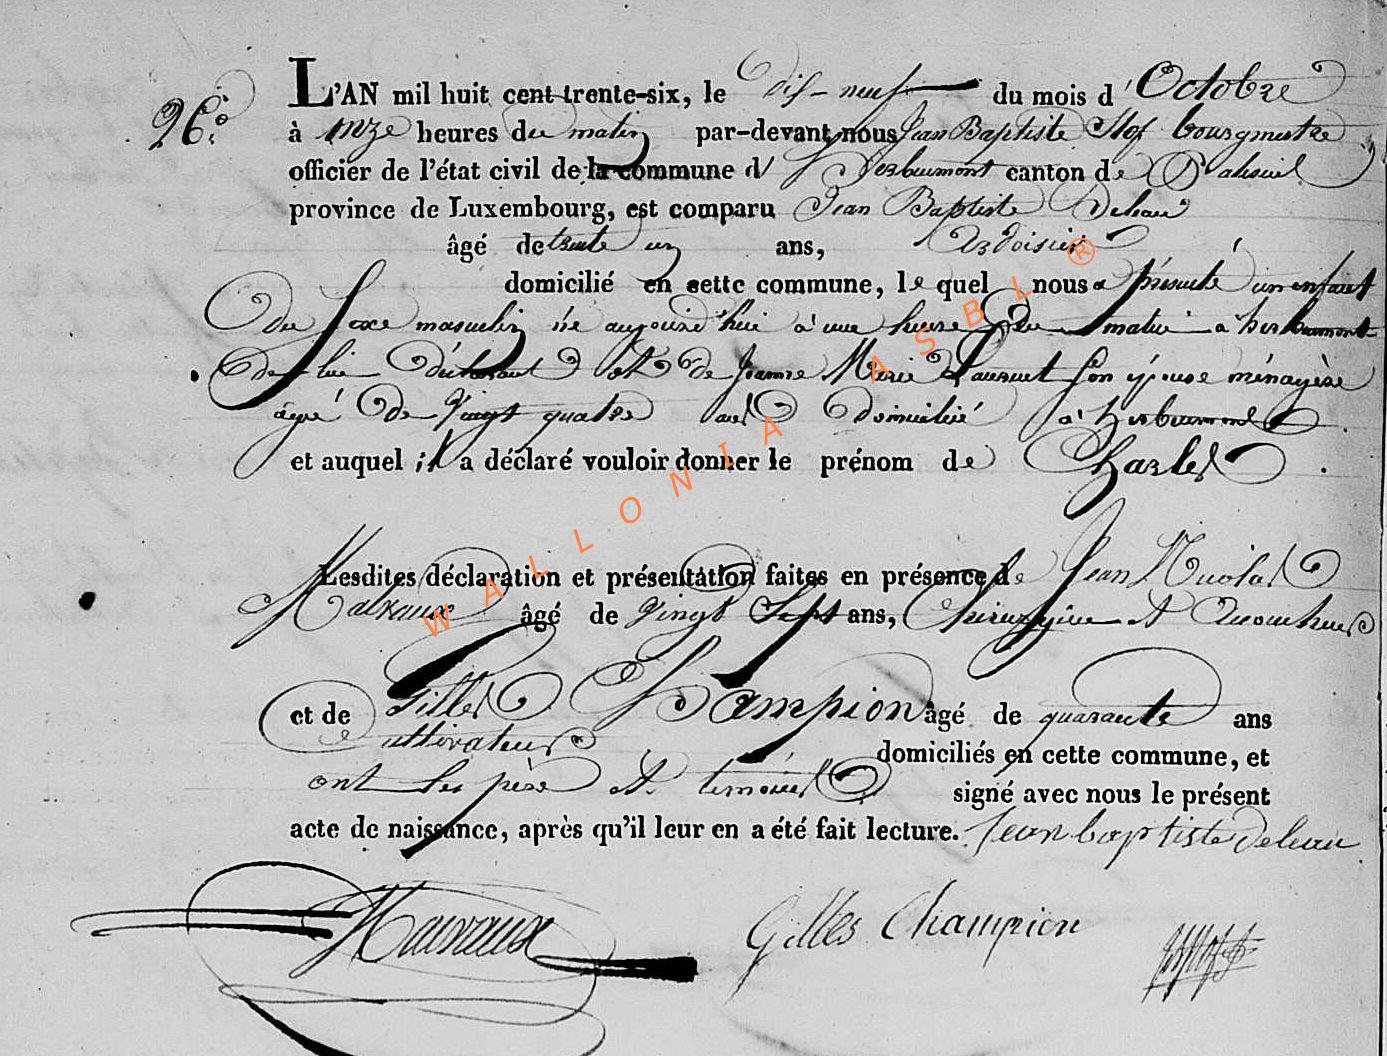 26.
L'AN mil huit cent trente-six, le dix-neuf du mois d'Octobre
à onze heures du matin par-devant nous Jean Baptiste Hof bourgmestre
officier de l'état civil de la commune d'herbeumont canton de Paliseul
province de Luxembourg, est comparu Jean Baptiste Deleau
âgé de trente un ans, Ardoisier
domicilié en cette commune, lequel nous a présenté un enfant
du sexe masculin né aujourd'hui à une heure du matin à herbeumont
de lui déclarant et de Jeanne Marie Lauruet son épouse ménagère
agé de vingt quatre ans domicilié à herbeumont
et auquel il a déclaré vouloir donner le prénom de Charles
Lesdites déclaration et présentation faites en présence de Jean Nicolas
Malvaux âgé de vingt sept ans, Chirurgien et Acoucheur
et de Gilles Champion âgé de quarante ans
Cultivateur domiciliés en cette commune, et
ont les père et témoins signé avec nous le présent
acte de naissance, après qu'il leur en a été fait lecture. Jean baptiste Deleau
Gilles Champion
WALLONIA ASBL ®